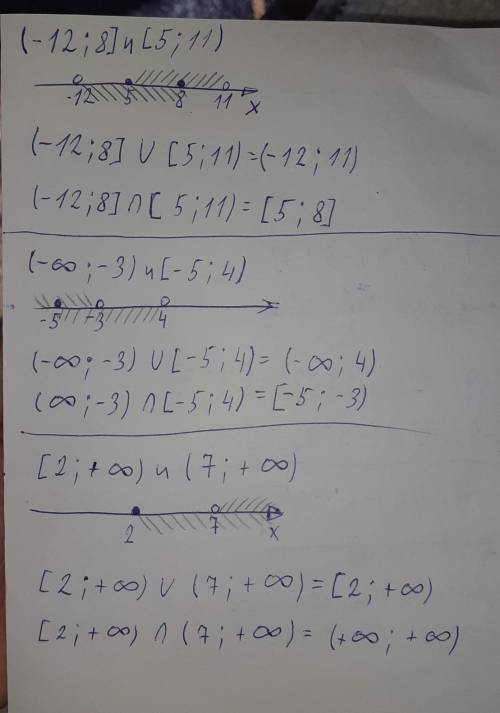 (-12; 8] и [5; 11)
-12 5 8 11 x
(-12; 8] ∪ [5; 11) = (-12; 11)
(-12; 8] ∩ [5; 11) = [5; 8]
(-∞; -3) и [-5; 4)
-5 -3 4
(-∞; -3) ∪ [-5; 4) = (-∞; 4)
(∞; -3) ∩ [-5; 4) = [-5; -3)
[2; +∞) и (7; +∞)
2 7 x
[2; +∞) ∪ (7; +∞) = [2; +∞)
[2; +∞) ∩ (7; +∞) = (+∞; +∞)